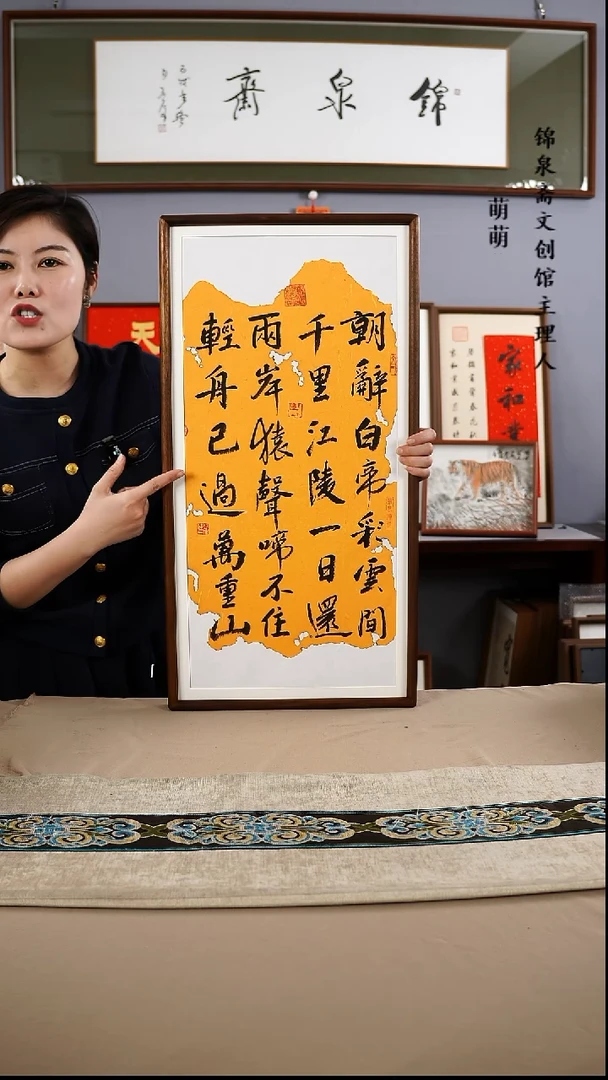 錦泉齋
锦泉斋文创馆主理人
萌萌
朝辭白帝彩雲間
千里江陵一日還
兩岸猿聲啼不住
輕舟已過萬重山
天
家和